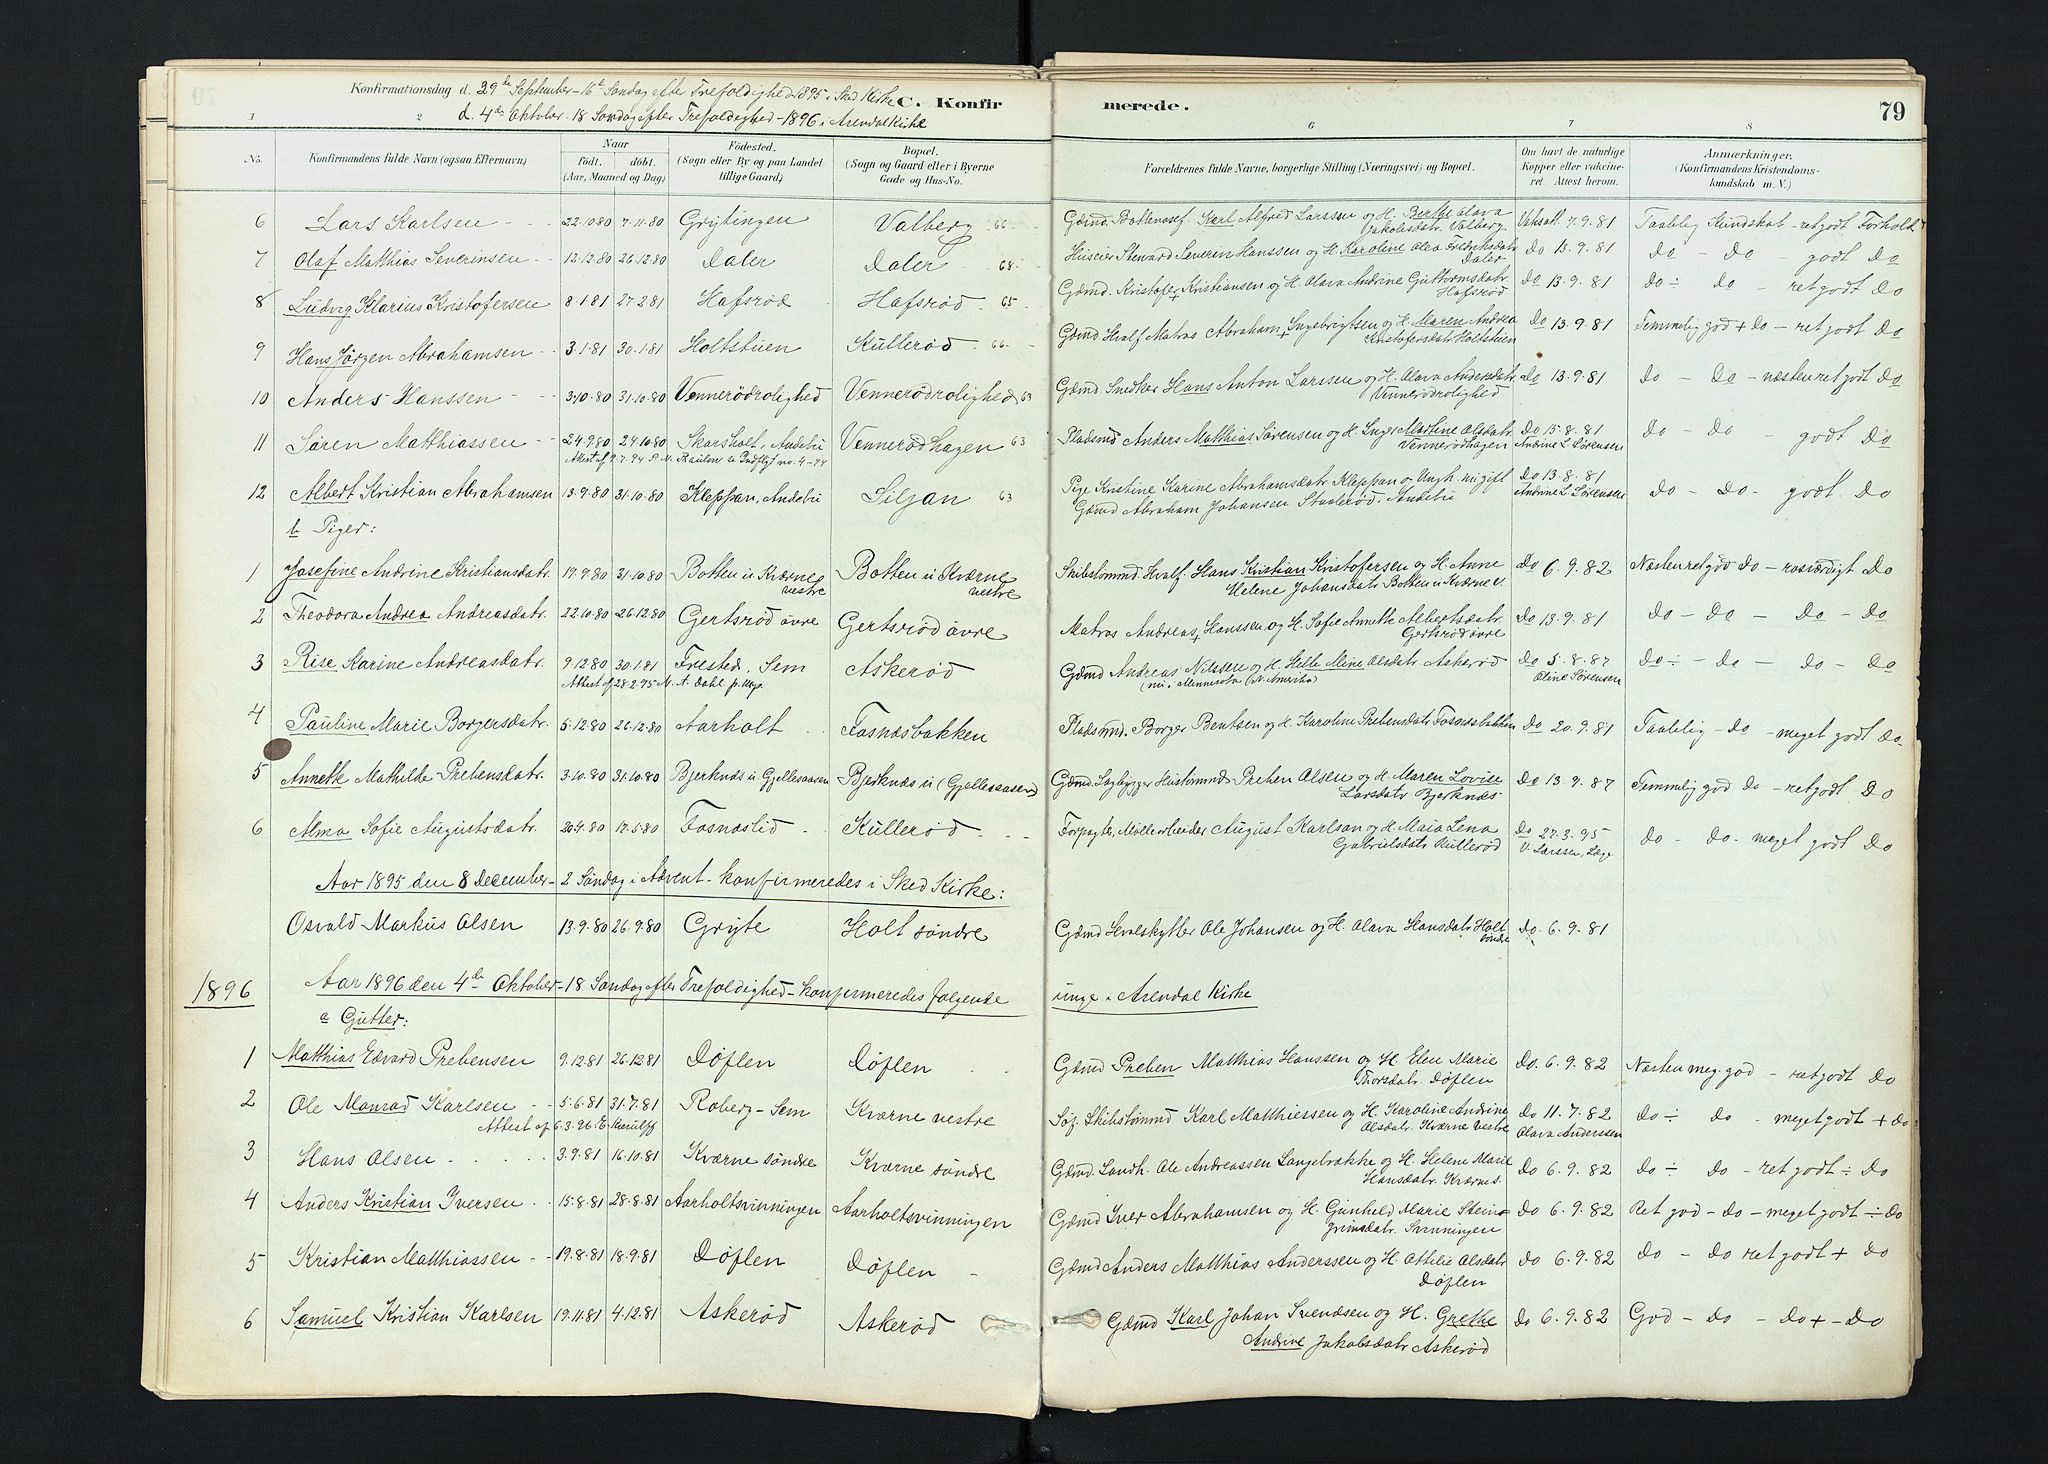 Konfirmationsdag d. 29de September - 16de Søndag efter Trefoldighed 1895 i Sked Kirke C. Konfir merede. 79
d. 4de Oktober - 18 Søndag efter Trefoldighed - 1896 i Arendal Kirke
1 2 6 7 8
No. Konfirmandens fulde Navn (ogsaa Efternavn) Naar født. døbt. (Aar, Maaned og Dag) Fødested. (Sogn eller By og paa Landet tillige Gaard.) Bopæl. (Sogn og Gaard eller i Byerne Gade og Hus-No. Forældrenes fulde Navne, borgerlige Stilling (Næringsvei) og Bopæl. Om havt de naturlige Kopper eller vakcineret. Attest herom. Anmærkninger. (Konfirmandens Kristendomskundskab m. V.)
6 Lars Karlsen 22.10.80 7.11.80 Grytingen Valberg 66 Gæmd. Karl Alfred Larssen og H. Berthe Olava Jakobsdatr. Valberg. Vaksatt. 7.9.81 Taablig Kundskab - retgodt Forhold
7 Olaf Matthias Severinsen 12.12.80 26.12.80 Daler Daler 68 Huseier Steward Severin Hanssen og H. Karoline Olava Fredriksdatr. Daler Do 13.9.81 Do - Do - godt Do
8 Ludvig Klarius Kristofersen 8.1.81 27.2.81 Hafsrød Hafsrød 65 Gæmd. Kristofer Kristiansen og H. Olava Andrine Guttormsdatr. Hafsrød Do 13.9.81 Do ÷ Do - retgodt Do
9 Hans Jørgen Abrahamsen 3.1.81 30.1.81 Holtstuen Kullerød 66 Gæmd Hvalf. Matros Abraham Ingebrigtsen og H. Maren Andrea Kristofersdatr. Holtstuen Do 13.9.81 Temmelig god + Do - retgodt Do
10 Anders Hanssen 3.10.80 31.10.80 Vennerødrolighed Vennerødrolighed 63 Gæmd Snedker Hans Anton Larssen og H. Olava Andersdatr. Vennerødrolighed Do 13.9.81 Do - Do - næsten retgodt Do
11 Søren Matthiassen 24.9.80 24.10.80 Skarsholt, Andebu Vennerødhagen 63 Pladsmd Anders Matthias Sørensen og H. Inger Martine Olsdatr. Vennerødhagen Do 15.8.81 Andrine L. Sørensen Do - Do - godt Do
Attest af 9.7.94 no. 4-94
12 Albert Kristian Abrahamsen 13.9.80 31.10.80 Kleppan, Andebu Siljan 63 Pige Kristine Karine Abrahamsdatr. Kleppan og Ungk. nu gift Gæmd Abraham Johansen Staalerød, Andebu Do 13.8.81 Andrine L. Sørensen Do - Do - godt. Do
b Piger:
1 Josefine Andrine Kristiansdatr. 19.9.80 31.10.80 Botten u. Kværne vestre Botten u. Kværne vestre Skibstømmd Hvalf. Hans Kristian Kristofersen og H. Anne Helene Johansdatr Botten u Kværne v. Do 6.9.82 Næsten retgod Do - rosværdigt Do
2 Theodora Andrea Andreasdatr. 22.10.80 26.12.80 Gertsrød øvre Gertsrød øvre Matros Andreas Hanssen og H. Sofie Annette Albertsdatr. Gertsrød øvre Do 13.9.81 Do - Do - Do - Do
3 Rise Karine Andreasdatr. 9.12.80 30.1.81 Frestød, Sem Askerød Gæmd Andreas Nilssen og H. Helle Mine Olsdatr. Askerød (nu i Minnesota (N. Amerika) Do 5.8.87 Oline Sørensen Do ÷ - Do - Do - Do
Attest af 28.2.95 N. A. Dahl p. Kap.
4 Pauline Marie Borgersdatr. 5.12.80 26.12.80 Aarholt Fosnæsbakken Pladsmd. Borger Bentsen og H. Karoline Prebensdatr Fosnæsbakken Do 20.9.81 Taablig - Do - meget godt Do
5 Annette Mathilde Prebensdatr. 3.10.80 31.10.80 Bjerknæs u. Gjellesaasen Bjerknæs u (Gjellesaasen) Gæmd. Husetømmd. Preben Olsen og H. Maren Lovise Larsdatr Bjerknæs Do 13.9.87 Temmelig god Do - retgodt Do
6 Alma Sofie Augustsdatr. 20.4.80 17.5.80 Fosnæslid Kullerød Forpagter, Møllearbeider August Karlson og H. Maia Lena Gabrielsdatr Kullerød Do 27.3.95 V. Larssen, Læge Do - Do - meget godt Do
Aar 1895 den 8 December - 2 Søndag i Advent - konfirmeredes i Sked Kirke:
Osvald Markus Olsen 13.9.80 26.9.80 Gryte Holt søndre Gæmd Hvalskytter Ole Johansen og H. Olava Hansdatr Holt søndre Do. 6.9.81
1896 Aar 1896 den 4de Oktober - 18 Søndag efter Trefoldighed - konfirmeredes følgende unge i Arendal Kirke
a Gutter:
1 Matthias Edvard Prebensen 9.12.81 26.12.81 Døflen Døflen Gæmd Preben Matthias Hanssen og H. Elen Marie Thorsdatr. Døflen Do. 6.9.82 Næsten meg. god - retgodt Do
2 Ole Monrad Karlsen 5.6.81 31.7.81 Roberg - Sem Kværne vestre Søf. Skibstømmd Karl Matthiessen og H. Karoline Andrine Olsdatr. Kværne vestre Do 11.7.82 Olava Anderssen Do ÷ Do - megetgodt + Do
Attest af 6.3.96 E. Kierulff
3 Hans Olsen 3.9.81 16.10.81 Kværne søndre Kværne søndre Gæmd. Landh. Ole Andreassen Langebrække og H. Helene Marie Hansdatr. Kværnes. Do 6.9.82 Do ÷ Do - retgodt ÷ Do
4 Anders Kristian Iversen 15.8.81 28.8.81 Aarholtsvinningen Aarholtsvinningen Gæmd Iver Abrahamsen og H. Gunhild Marie Steingrimsdatr. Svinningen Do 6.9.82 Ret god - Do - megetgodt ÷ Do
5 Kristian Matthiassen 19.8.81 18.9.81 Døflen Døflen Gæmd Anders Matthias Anderssen og H. Attilie Olsdatr Døflen Do 6.9.82 Do - Do retgodt + Do
6 Samuel Kristian Karlsen 19.11.81 4.12.81 Askerød Askerød Gæmd Karl Johan Svendsen og H. Grethe Andrine Jakobsdatr Askerød Do 6.9.82 God - Do - Do + - Do